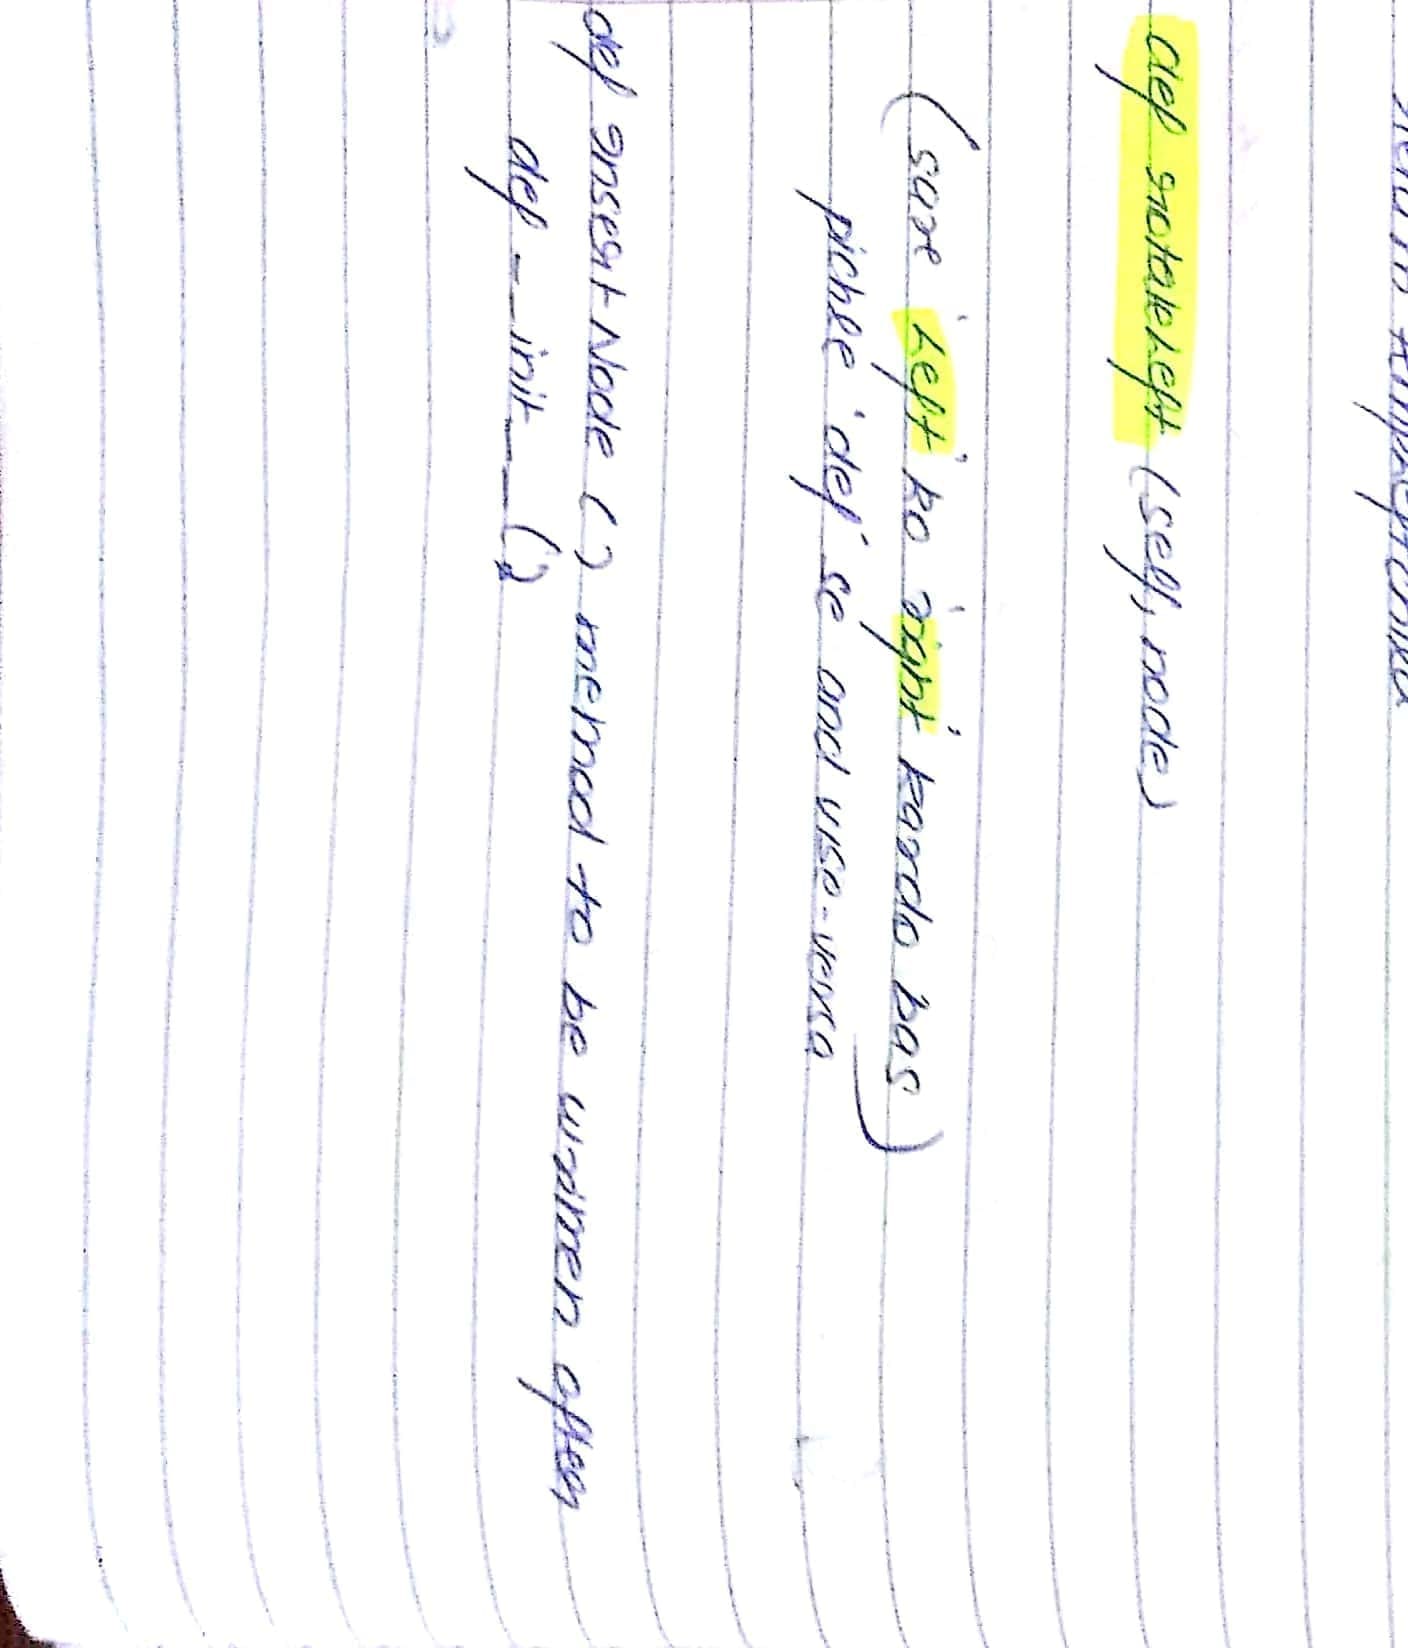 def rotateLeft (self, node)
(sare 'Left' ko 'right' kardo bas)
pichle 'def' se and vise-versa
def insertNode () method to be written after
def __init__()